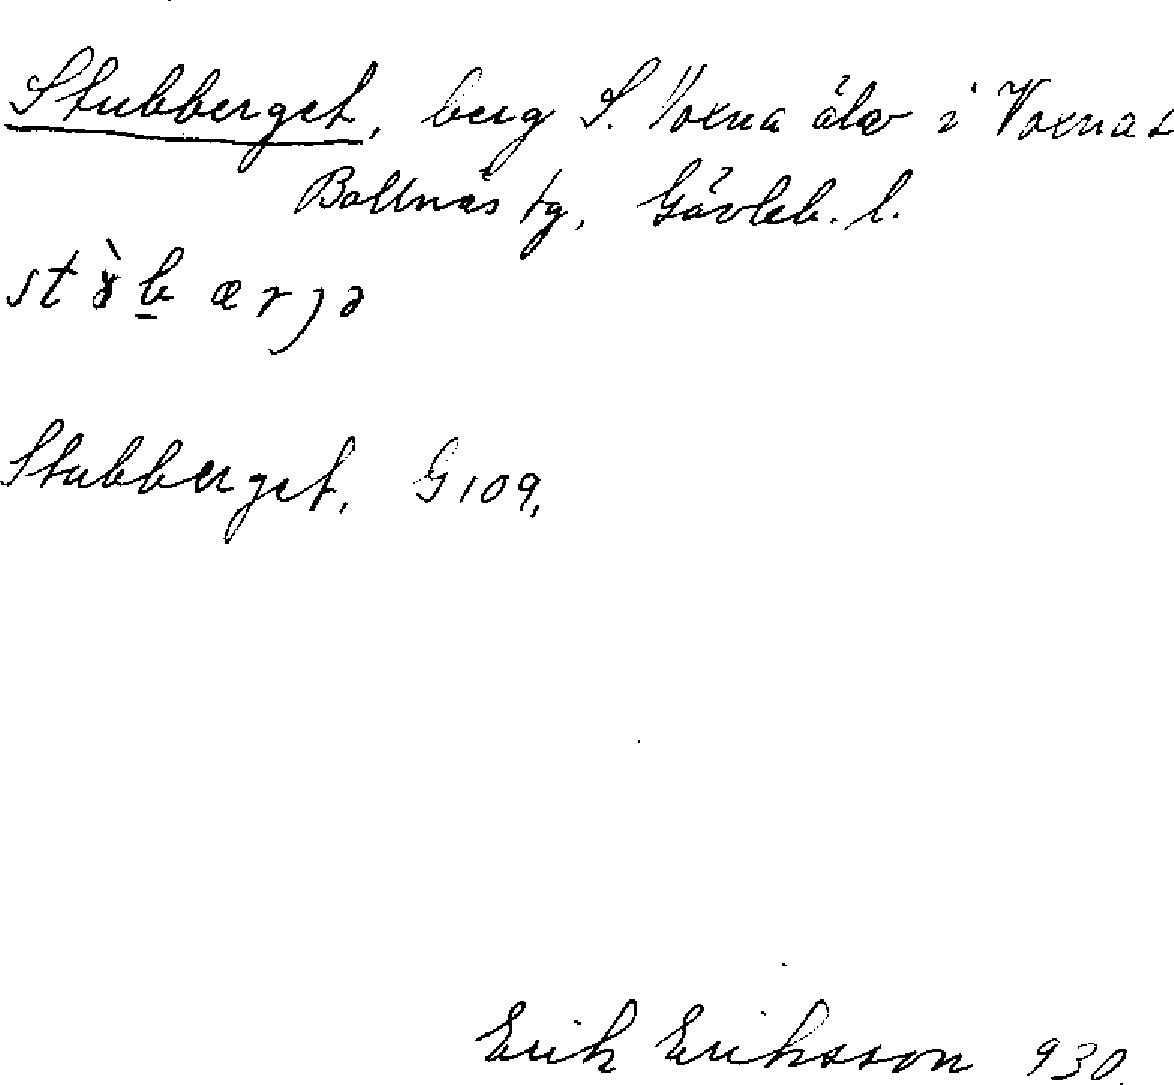 Stubberget, berg S. Voxna älv i Voxna s
Bollnäs tg, Gävleb. l.
st b æ r j ə
Stubberget, G 109,
Erik Eriksson 930.